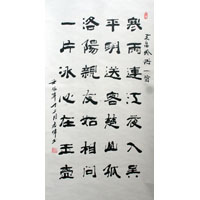 王昌齡詩一首
寒雨連江夜入吳
平明送客楚山孤
洛陽親友如相問
一片冰心在玉壺